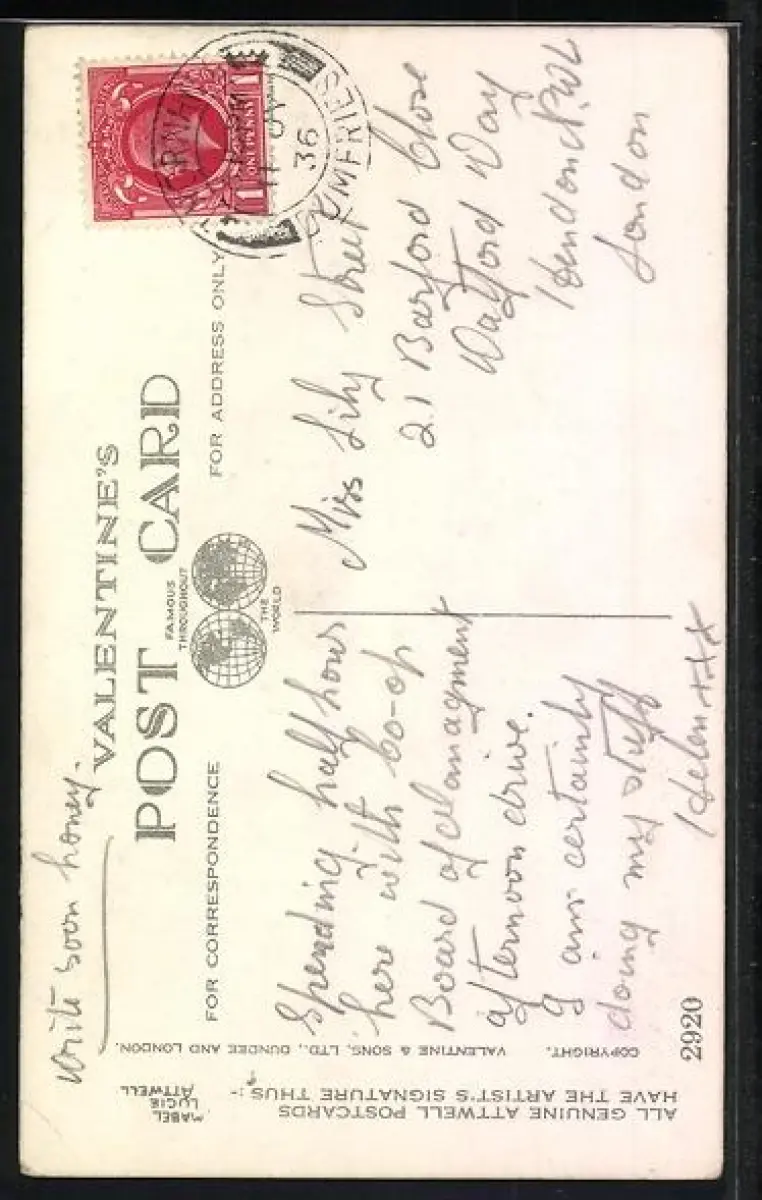 Write soon honey.
VALENTINE'S
POST CARD
FAMOUS
THROUGHOUT
THE
WORLD
FOR CORRESPONDENCE
FOR ADDRESS ONLY
ONE PENNY
1
1
36
DUMFRIES
Spending half hour
here with Co-op
Board of Managment
afternoon drive.
I am certainly
doing my stuff
Helen xxx
Miss Lily Street
21 Barford Close
Watford Way
Hendon N.W.4
London
ALL GENUINE ATTWELL POSTCARDS
HAVE THE ARTIST'S SIGNATURE THUS :-
MABEL
LUCIE
ATTWELL
COPYRIGHT. VALENTINE & SONS, LTD., DUNDEE AND LONDON.
2920